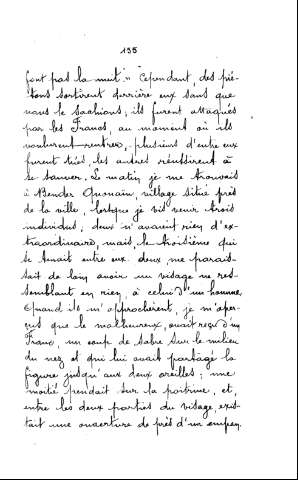 195
font pas la nuit." Cependant, des pié-
tons sortirent derrière eux sans que
nous le sachions; ils furent attaqués
par les Francs, au moment où ils
voulurent rentrer, plusieurs d'entre eux
furent tués, les autres réussirent à
se sauver. Le matin, je me trouvais
à Bender Qounain, village situé près
de la ville, lorsque je vis venir trois
individus; deux n'avaient rien d'ex-
traordinaire, mais, le troisième qui
se tenait entre eux deux me parais-
sait de loin avoir un visage ne res-
semblant en rien, à celui d'un homme.
Quand ils m'approchèrent, je m'aper-
çus que le malheureux, avait reçu d'un
Franc, un coup de sabre sur le milieu
du nez et qui lui avait partagé la
figure jusqu'aux deux oreilles; une
moitié pendait sur la poitrine, et,
entre les deux parties du visage, exis-
tait une ouverture de près d'un empan.